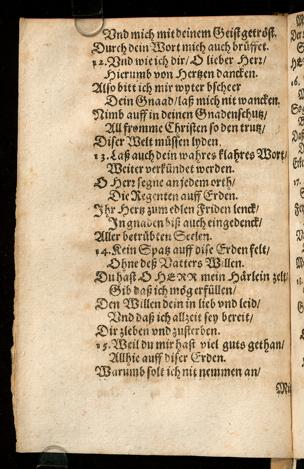 Vnd mich mit deinem Geist getröst.
Durch dein Wort mich auch brüffet.
12. Vnd wie ich dir / O lieber Herr /
Hierumb von Hertzen dancken.
Also bitt ich mir wyter bscheer
Dein Gnaad / laß mich nit wancken.
Nimb auff in deinen Gnadenschutz /
All fromme Christen so den trutz /
Diser Welt müssen lyden.
13. Laß auch dein wahres klahres Wort /
Weiter verkündet werden.
O Herr segne an jedem orth /
Die Regenten auff Erden.
Ihr Hertz zum edlen Friden lenck /
In gnaden biß auch eingedenck /
Aller betrübten Seelen.
14. Kein Spatz auff dise Erden felt /
Ohne deß Vatters Willen.
Du hast O HERR mein Härlein zelt /
Gib daß ich mög erfüllen /
Den Willen dein in lieb vnd leid /
Vnd daß ich allzeit sey bereit /
Dir zleben vnd zusterben.
15. Weil du mir hast viel guts gethan /
Allhie auff diser Erden.
Warumb solt ich nit nemmen an /